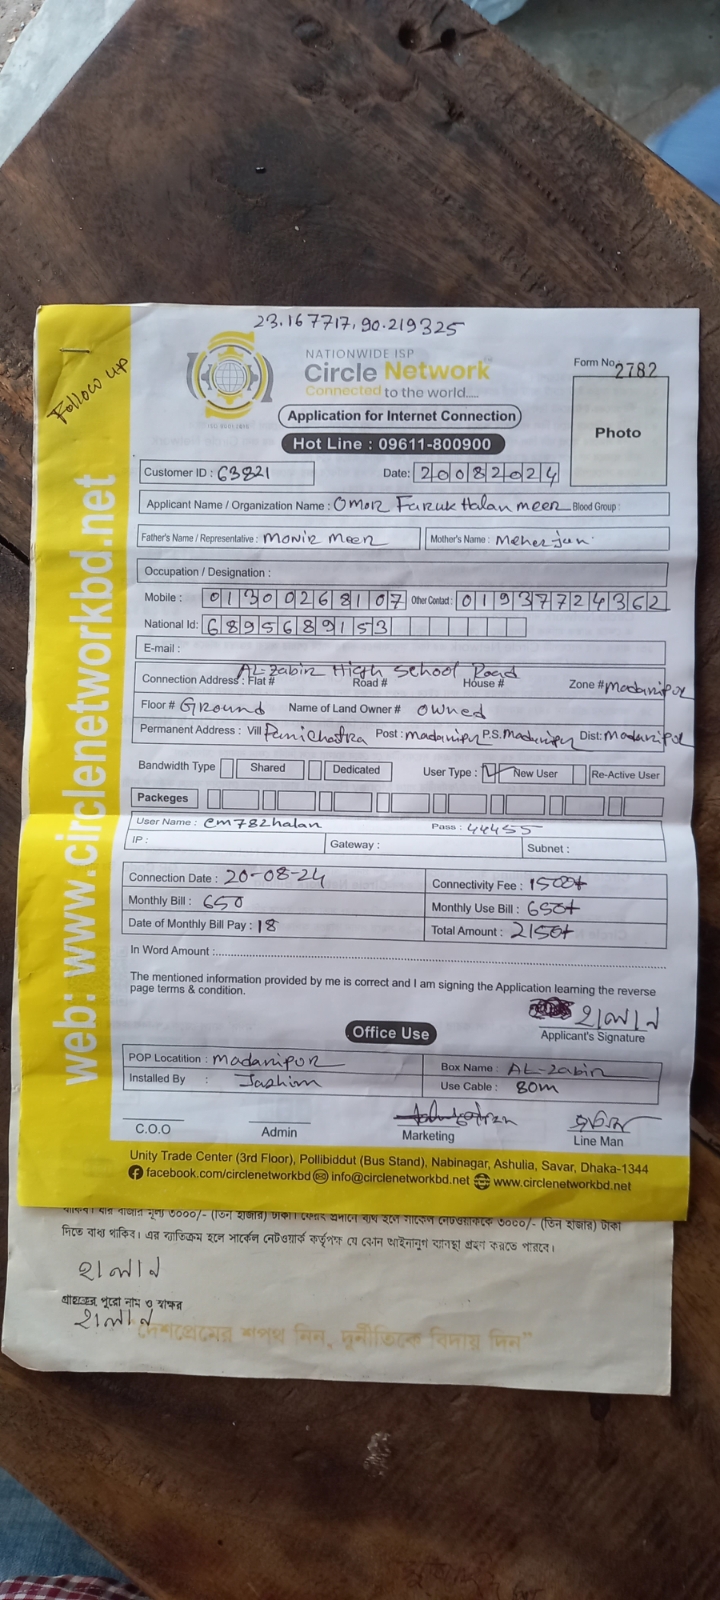 23.167717, 90.219325
Follow up
NATIONWIDE ISP
Circle Network
Connected to the world.....
ISO 9001:2015
Form No. 2782
Application for Internet Connection
Photo
Hot Line : 09611-800900
Customer ID : 63821 Date: 20082024
Applicant Name / Organization Name : Omor Faruk Halan meer Blood Group:
Father's Name / Representative : Monir Meer Mother's Name : Meher jan
Occupation / Designation :
Mobile : 01300268107 Other Contact : 01937724362
National Id: 6895689153
E-mail :
AL-Zabir High School Road
Connection Address : Flat # Road # House # Zone # Madaripur
Floor # Ground Name of Land Owner # owned
Permanent Address : Vill Panichatra Post : madaripur P.S. Madaripur Dist: Madaripur
Bandwidth Type Shared Dedicated User Type : New User Re-Active User
Packeges
User Name : cm782halan Pass : 44455
IP : Gateway : Subnet :
Connection Date : 20-08-24 Connectivity Fee : 1500+
Monthly Bill : 650 Monthly Use Bill : 650+
Date of Monthly Bill Pay : 18 Total Amount : 2150+
In Word Amount :
The mentioned information provided by me is correct and I am signing the Application learning the reverse
page terms & condition.
হালান
Applicant's Signature
Office Use
POP Locatition : Madaripur Box Name : AL-Zabir
Installed By : Jashim Use Cable : 80m
C.O.O Admin Marketing Line Man
Unity Trade Center (3rd Floor), Pollibiddut (Bus Stand), Nabinagar, Ashulia, Savar, Dhaka-1344
facebook.com/circlenetworkbd info@circlenetworkbd.net www.circlenetworkbd.net
web: www.circlenetworkbd.net
দিতে বাধ্য থাকিব। এর ব্যতিক্রম হলে সার্কেল নেটওয়ার্ক কর্তৃপক্ষ যে কোন আইনানুগ ব্যবস্থা গ্রহণ করতে পারবে।
হালান
গ্রাহকের পুরো নাম ও স্বাক্ষর
হালান
"দেশপ্রেমের শপথ নিন, দুর্নীতিকে বিদায় দিন"